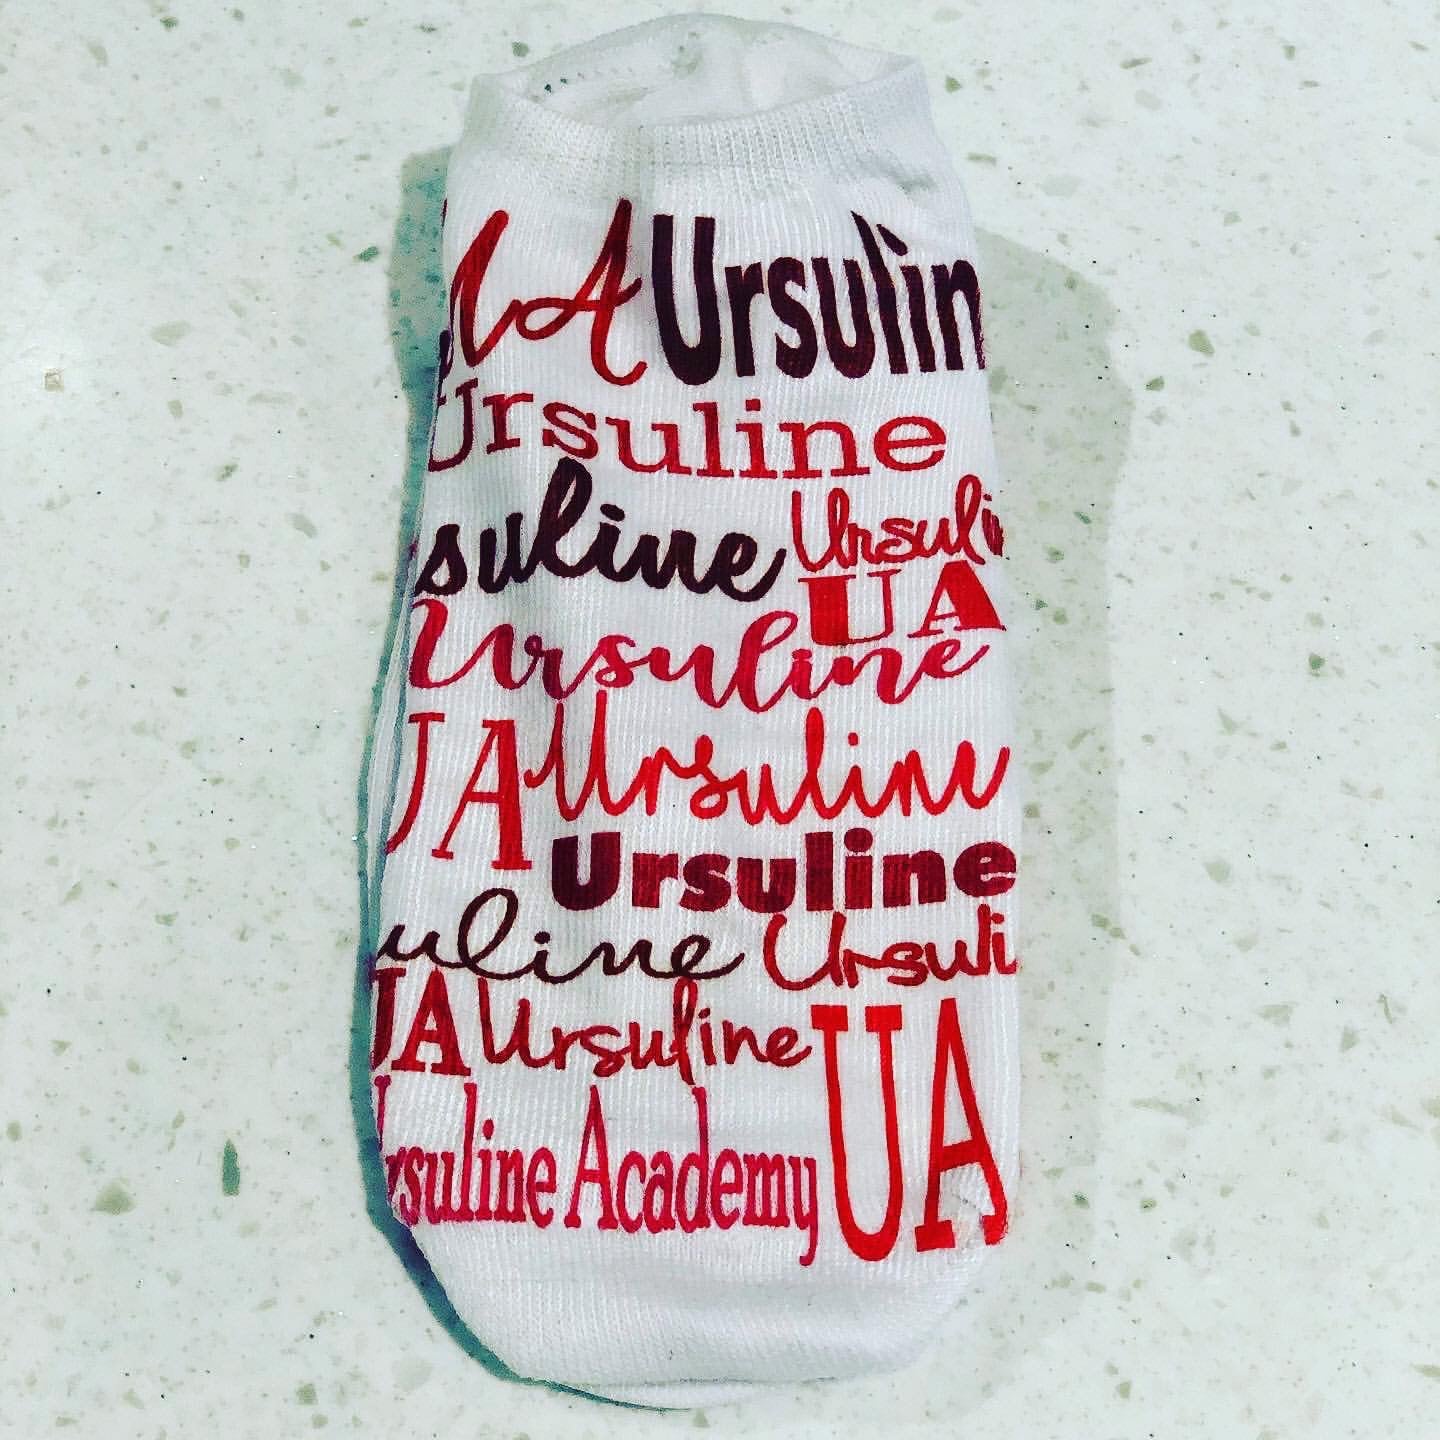 UA Ursulin
Ursuline
suline Ursulin
UA
Ursuline
UA Ursuline
Ursuline
uline Ursuli
UA Ursuline UA
Ursuline Academy